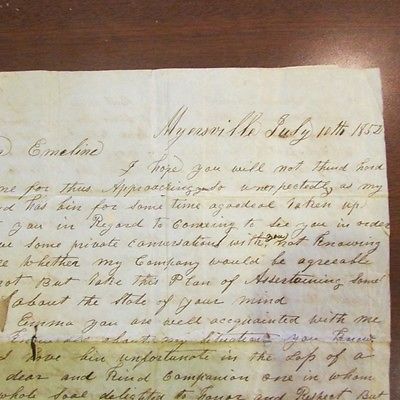 Myersville July 10th 1852
Emeline
I hope you will not think hard
me for thus Approaching so unexpectedly as my
has bin for some time agoodeal taken up
you in Regard to Comeing to see you in order
some private conversation with you not knowing
whether my Company would be agreeable
not But take this Plan of Assertaining some
about the State of your mind
Emma you are well acquainted with me
my Situation you know
I have bin unfortunate in the Lop of a
dear and Kind Companion one in whom
whole Soal delighted to honor and Respect But